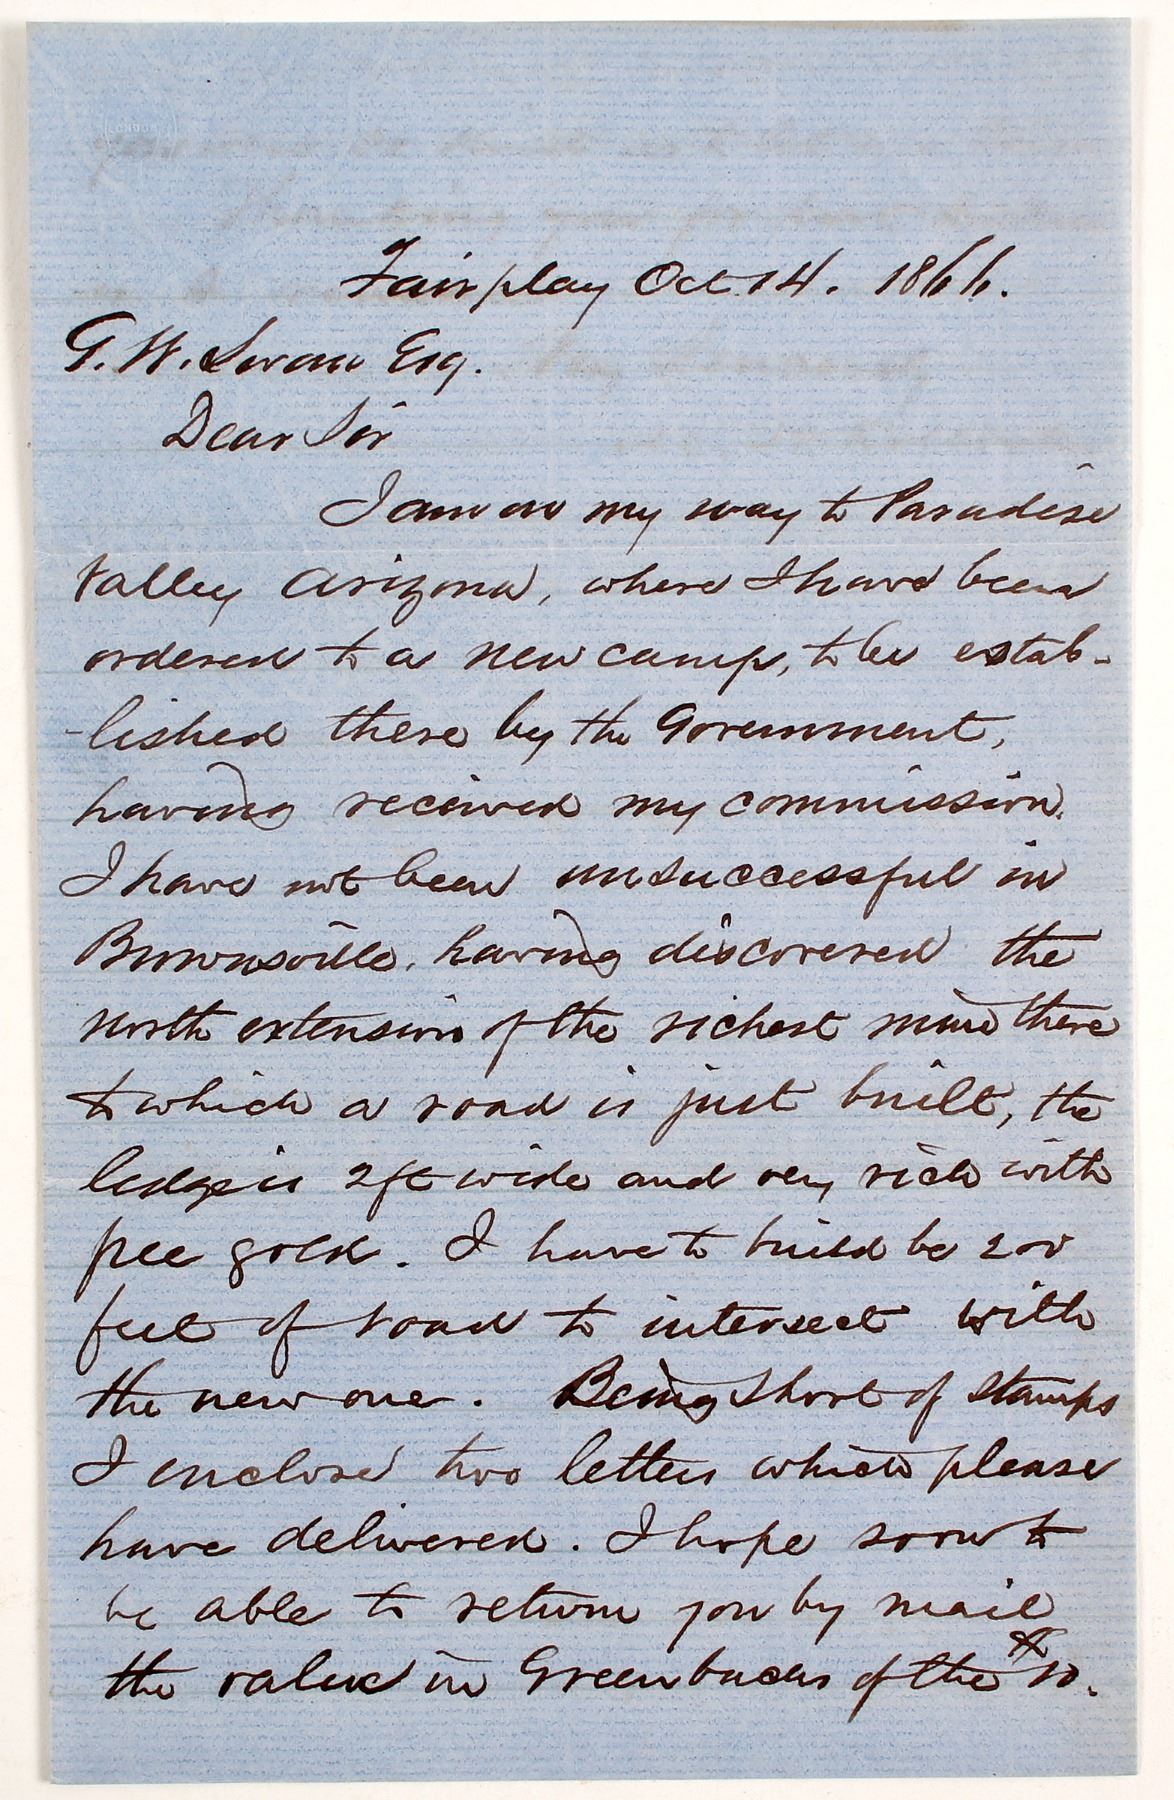 Fairplay Oct 14. 1866.
G. W. Swan Esq.
Dear Sir
I am on my way to Paradise
Valley Arizona, where I have been
ordered to a new camp, to be estab-
-lished there by the Government,
having received my commission.
I have not been unsuccessful in
Brownsville, having discovered the
north extension of the richest mine there
to which a road is just built, the
ledge is 2 ft wide and very rich with
free gold. I have to build be 200
feet of road to intersect with
the new one. Being short of stamps
I enclose two letters which please
have delivered. I hope soon to
be able to return you by mail
the value in Greenbacks of the $ 10.
LONDON